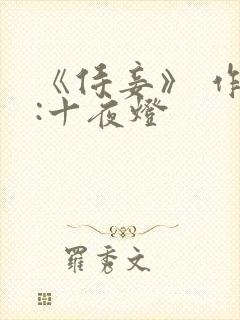 《侍妾》 作
:十夜燈
羅秀文